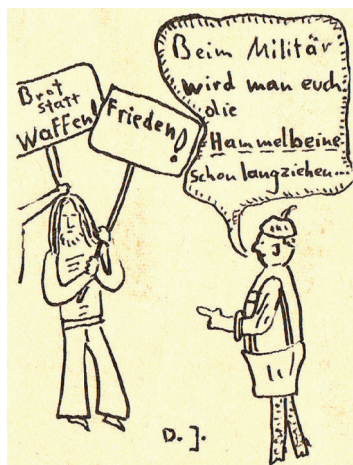 Brot
statt
Waffen!
Frieden!
Beim Militär
wird man euch
die
Hammelbeine
schon langziehen...
D. J.